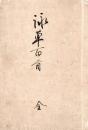 詠草百首 全